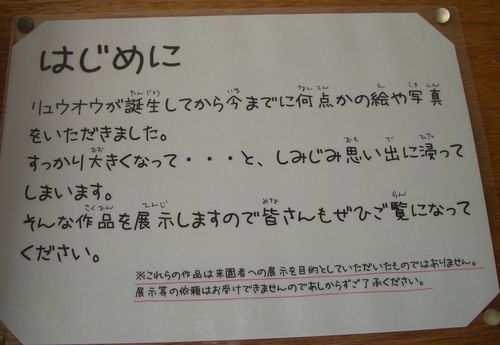 はじめに
リュウオウが誕生してから今までに何点かの絵や写真
をいただきました。
すっかり大きくなって・・・と、しみじみ思い出に浸って
しまいます。
そんな作品を展示しますので皆さんもぜひご覧になって
ください。
※これらの作品は来園者への展示を目的としていただいたものではありません。
展示等の依頼はお受けできませんのであしからずご了承ください。